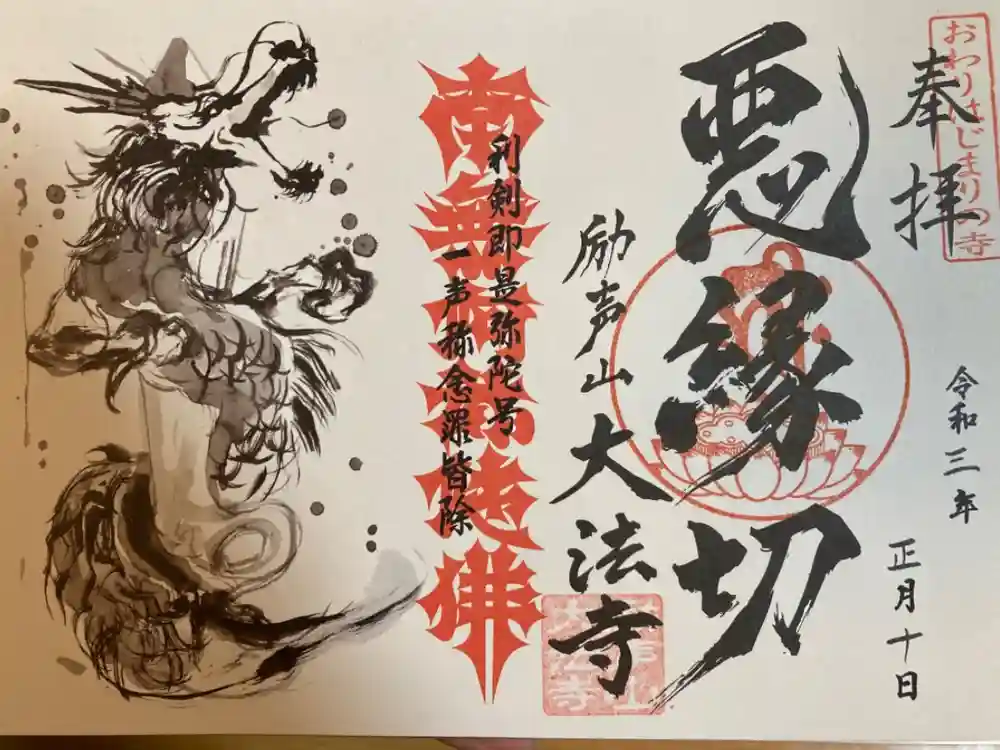 おわりはじまりの寺
奉拝
令和三年
正月十日
悪縁切
励声山大法寺
利剣即是弥陀号
一声称念罪皆除
南無阿弥陀佛